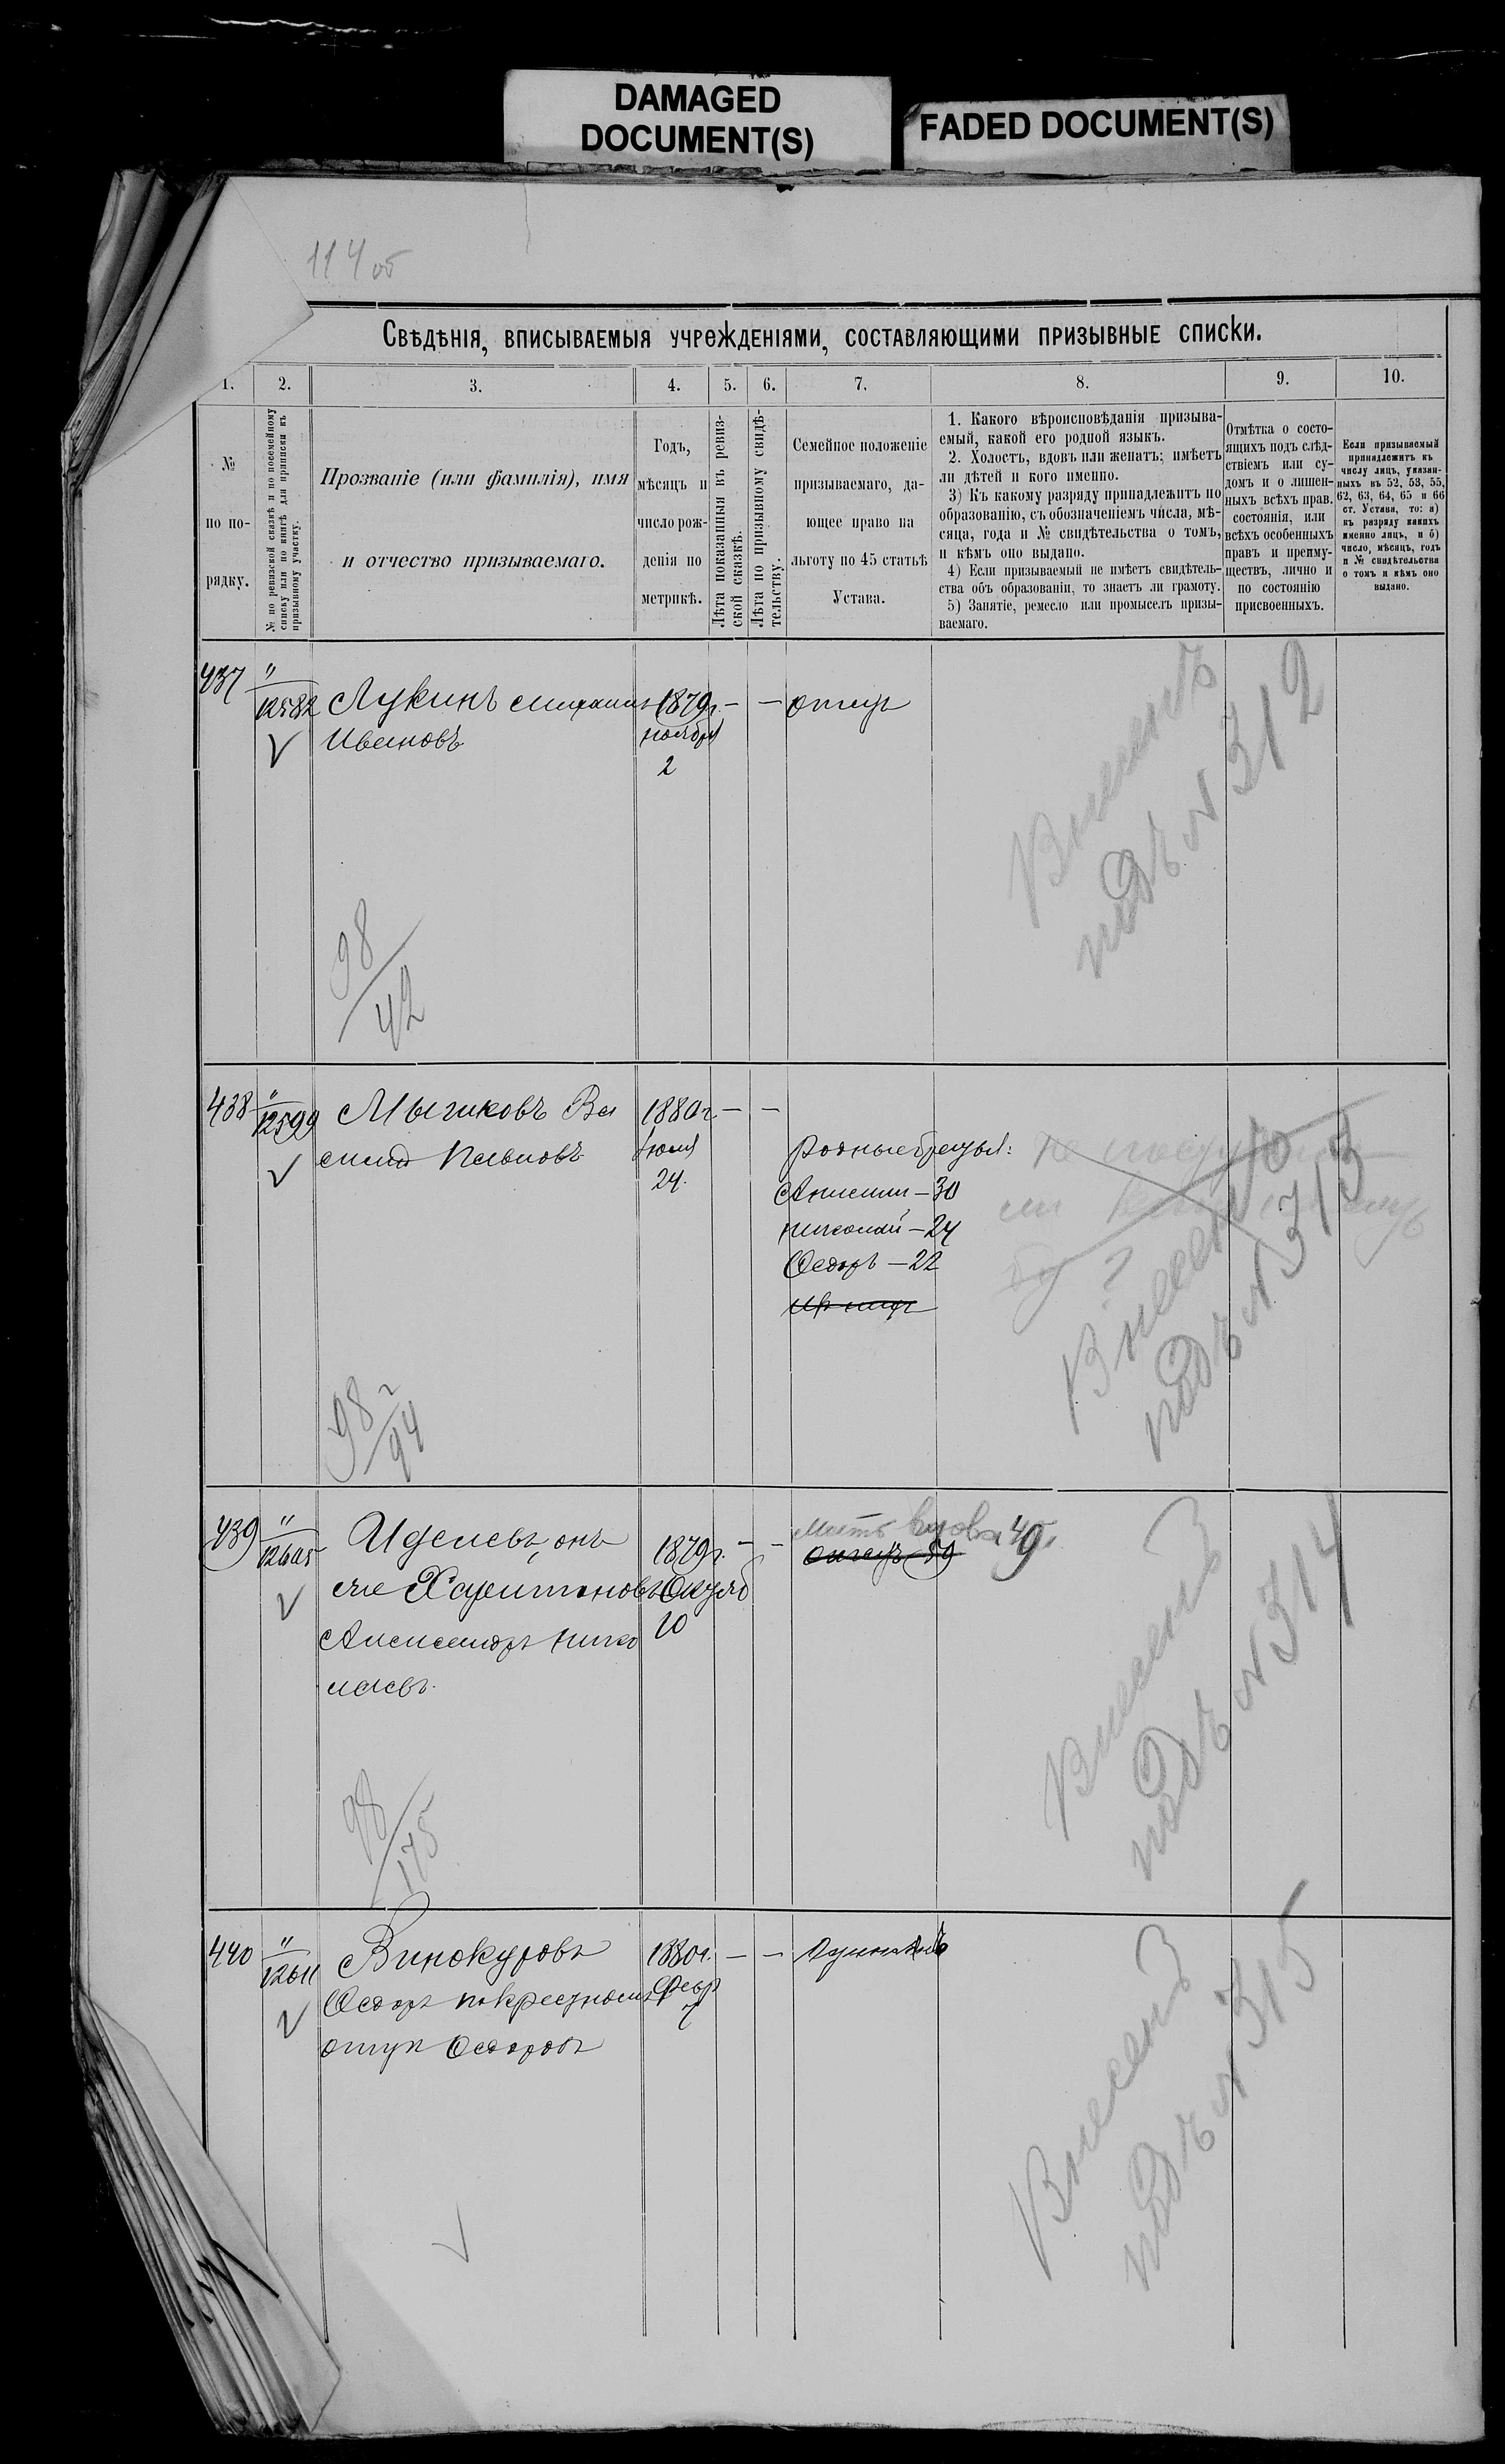 DAMAGED
DOCUMENT(S)
FADED DOCUMENT(S)
114 об
Свѣдѣнія, вписываемыя учрежденіями, составляющими призывные списки.
1.
2.
3.
4.
5.
6.
7.
8.
9.
10.
№
по по-
рядку.
№ по ревизской сказкѣ и по посемейному
списку или по книгѣ для приписки къ
призывному участку.
Прозваніе (или фамилія), имя
и отчество призываемаго.
Годъ,
мѣсяцъ и
число рож-
денія по
метрикѣ.
Лѣта показанныя въ ревиз-
ской сказкѣ.
Лѣта по призывному свидѣ-
тельству.
Семейное положеніе
призываемаго, да-
ющее право на
льготу по 45 статьѣ
Устава.
1. Какого вѣроисповѣданія призыва-
емый, какой его родной языкъ.
2. Холостъ, вдовъ или женатъ; имѣетъ
ли дѣтей и кого именно.
3) Къ какому разряду принадлежитъ по
образованію, съ обозначеніемъ числа, мѣ-
сяца, года и № свидѣтельства о томъ,
и кѣмъ оно выдано.
4) Если призываемый не имѣетъ свидѣтель-
ства объ образованіи, то знаетъ ли грамоту.
5) Занятіе, ремесло или промыселъ призы-
ваемаго.
Отмѣтка о состо-
ящихъ подъ слѣд-
ствіемъ или су-
домъ и о лишен-
ныхъ всѣхъ прав.
состоянія, или
всѣхъ особенныхъ
правъ и преиму-
ществъ, лично и
по состоянію
присвоенныхъ.
Если призываемый
принадлежитъ къ
числу лицъ, указан-
ныхъ въ 52, 53, 55,
62, 63, 64, 65 и 66
ст. Устава, то: а)
къ разряду какихъ
именно лицъ, и б)
число, мѣсяцъ, годъ
и № свидѣтельства
о томъ и кѣмъ оно
выдано.
437
"
12582
Лукинъ Михаилъ
Ивановъ
1879г.
ноября
2
— —
отецъ
Внесенъ
подъ № 312
98/42
438
"
12599
Мычиковъ Ва
силій Ивановъ
1880г.
Іюля
24.
— —
Родные братья:
Анисим — 30
Николай — 24
Ѳедоръ — 22
Внесенъ
подъ № 313
98/94
439
"
12605
онъ
же Харитоновъ
Александръ Нико
лаевъ.
1879г.
Октяб
10
— —
мать вдова 49.
отецъ — 59
Внесенъ
подъ № 314
98/175
440
"
12611
Винокуровъ
Ѳедоръ по крестному
отцу Ѳедоровъ
1880г.
Февр
7
— —
Внесенъ
подъ № 315